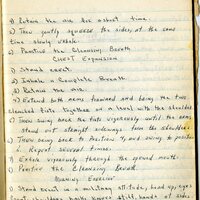 4) Retain the air for a short time.
5) Then gently squeeze the sides, at the same
time slowly exhale
6) Practice the Cleansing Breath
CHEST Expansion
1) Stand erect.
2) Inhale a Complete Breath
3) Retain the air
4) Extend both arms forward and bring the two
clenched fists together on a level with the shoulder
5) Then swing back the fists vigorously until the arms
stand out straight sideways from the shoulders
6) Then bring back to Position 4, and swing to position
5. Repeat several times.
7) Exhale vigorously through the opened mouth.
8) Practice the Cleansing Breath.
Morning Exercise
1) Stand erect in a military attitude, head up, eyes
front, shoulders back, knees stiff, hands at sides.